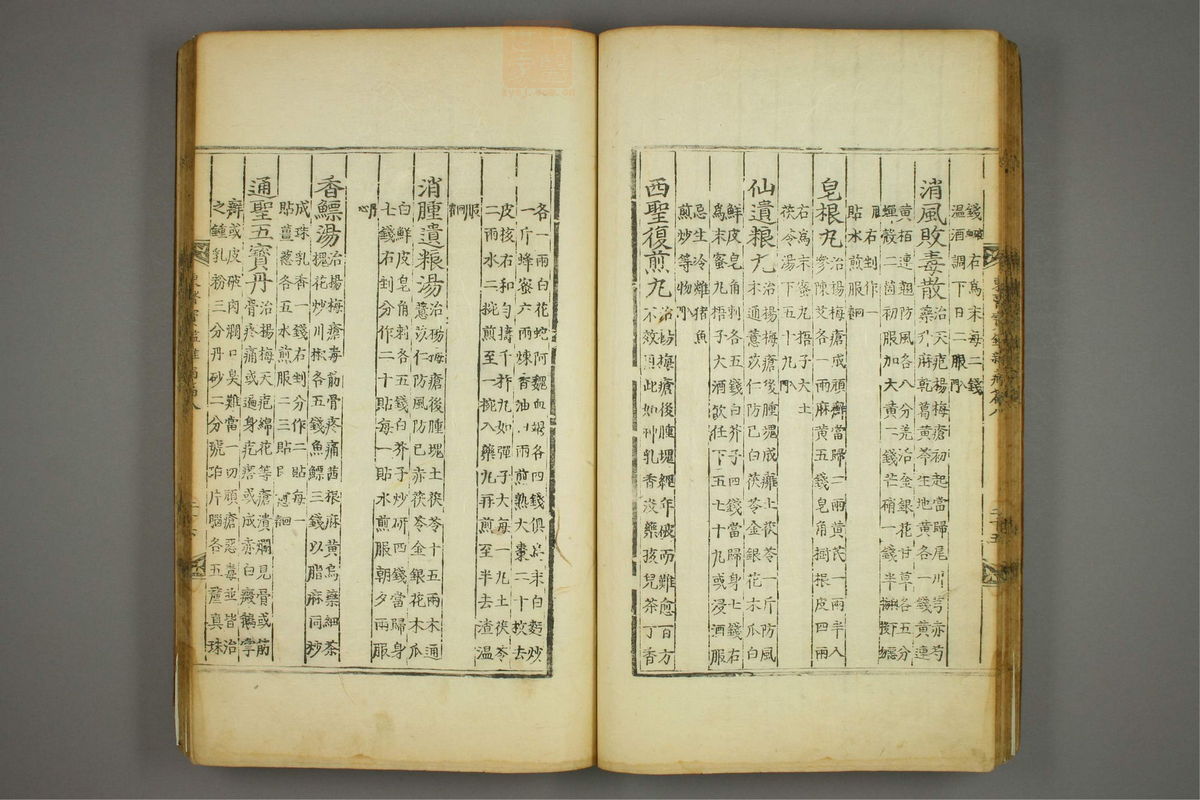 錢右爲末每二錢
溫酒調下日二服
消風敗毒散治天疱楊梅瘡初起當歸尾川芎赤芍
藥升麻乾葛黃芩生地黃各一錢黃連
黃栢連翹防風各八分羌活金銀花甘草各五分
蟬殼二箇初服加大黃二錢芒硝一錢半
右剉作一
貼水煎服
皂根丸治楊梅瘡成頑癬當歸二兩黃芪一兩半人
參陳艾各一兩麻黃五錢皂角樹根皮四兩
右爲末蜜丸梧子大土
茯苓湯下五十丸
仙遺粮丸治楊梅瘡後腫塊成癰土茯苓一斤防風
木通薏苡仁防己白茯苓金銀花木瓜白
鮮皮皂角刺各五錢白芥子四錢當歸身七錢右
爲末蜜丸梧子大酒飮任下五七十丸或浸酒服
忌生冷雞猪魚
煎炒等物
西聖復煎丸治楊梅瘡後腫塊經年破而難愈百方
不效頂此如神乳香沒藥孩兒茶丁香
各一兩白花蛇阿魏血竭各四錢俱爲末白麪炒
一斤蜂蜜六兩煉香油四兩煎熟大棗二十枚去
皮核右和勻擣千杵丸如彈子大每一丸土茯苓
二兩水二椀煎至一椀入藥丸再煎至半去渣溫
服
消腫遺粮湯治楊梅瘡後腫塊土茯苓十五兩木通
薏苡仁防風防己赤茯苓金銀花木瓜
白鮮皮皂角刺各五錢白芥子炒研四錢當歸身
七錢右剉分作二十貼每一貼水煎服朝夕兩服
香鰾湯治楊梅瘡毒筋骨疼痛茜根麻黃烏藥細茶
槐花炒川椒各五錢魚鰾三錢以脂麻同炒
成珠乳香一錢右剉分作二貼每一
貼薑葱各五水煎服二三貼
通聖五寶丹治楊梅天疱綿花等瘡潰爛見骨或筋
骨疼痛或遍身疙瘩或成赤白癜鵝掌
癬或皮破肉爛口臭難當一切頑瘡惡毒並皆治
之鍾乳粉三分丹砂二分琥珀片腦各五厘眞珠